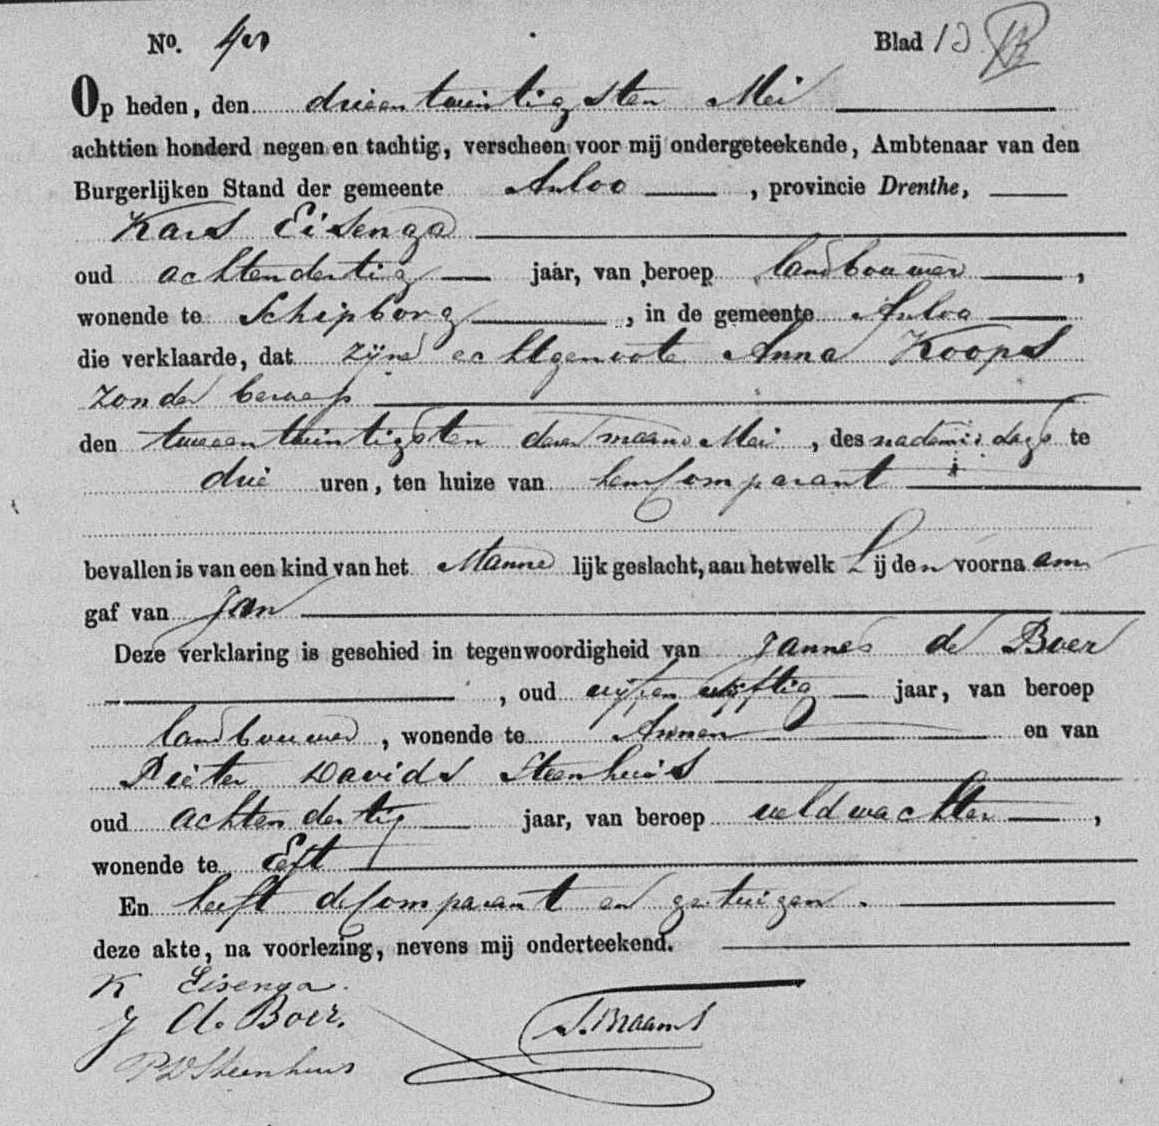 No. 40 Blad 13
Op heden, den drieentwintigsten Mei
achttien honderd negen en tachtig, verscheen voor mij ondergeteekende, Ambtenaar van den
Burgerlijken Stand der gemeente Anloo, provincie Drenthe,
Kars Eisenga
oud achtendertig jaar, van beroep landbouwer,
wonende te Schipborg, in de gemeente Anloo
die verklaarde, dat zijne echtgenoote Anna Koops
zonder beroep
den tweeentwintigsten dezer maand Mei, des nademiddags te
drie uren, ten huize van hem Comparant
bevallen is van een kind van het Manne lijk geslacht, aan hetwelk Hij den voornaam
gaf van Jan
Deze verklaring is geschied in tegenwoordigheid van Jannes de Boer
, oud vijfenvijftig jaar, van beroep
landbouwer, wonende te Annen en van
Pieter Davids Steenhuis
oud achtendertig jaar, van beroep veldwachter,
wonende te Eext
En heeft de Comparant en getuigen.
deze akte, na voorlezing, nevens mij onderteekend.
K Eisenga.
J d. Boer.
PD Steenhuis